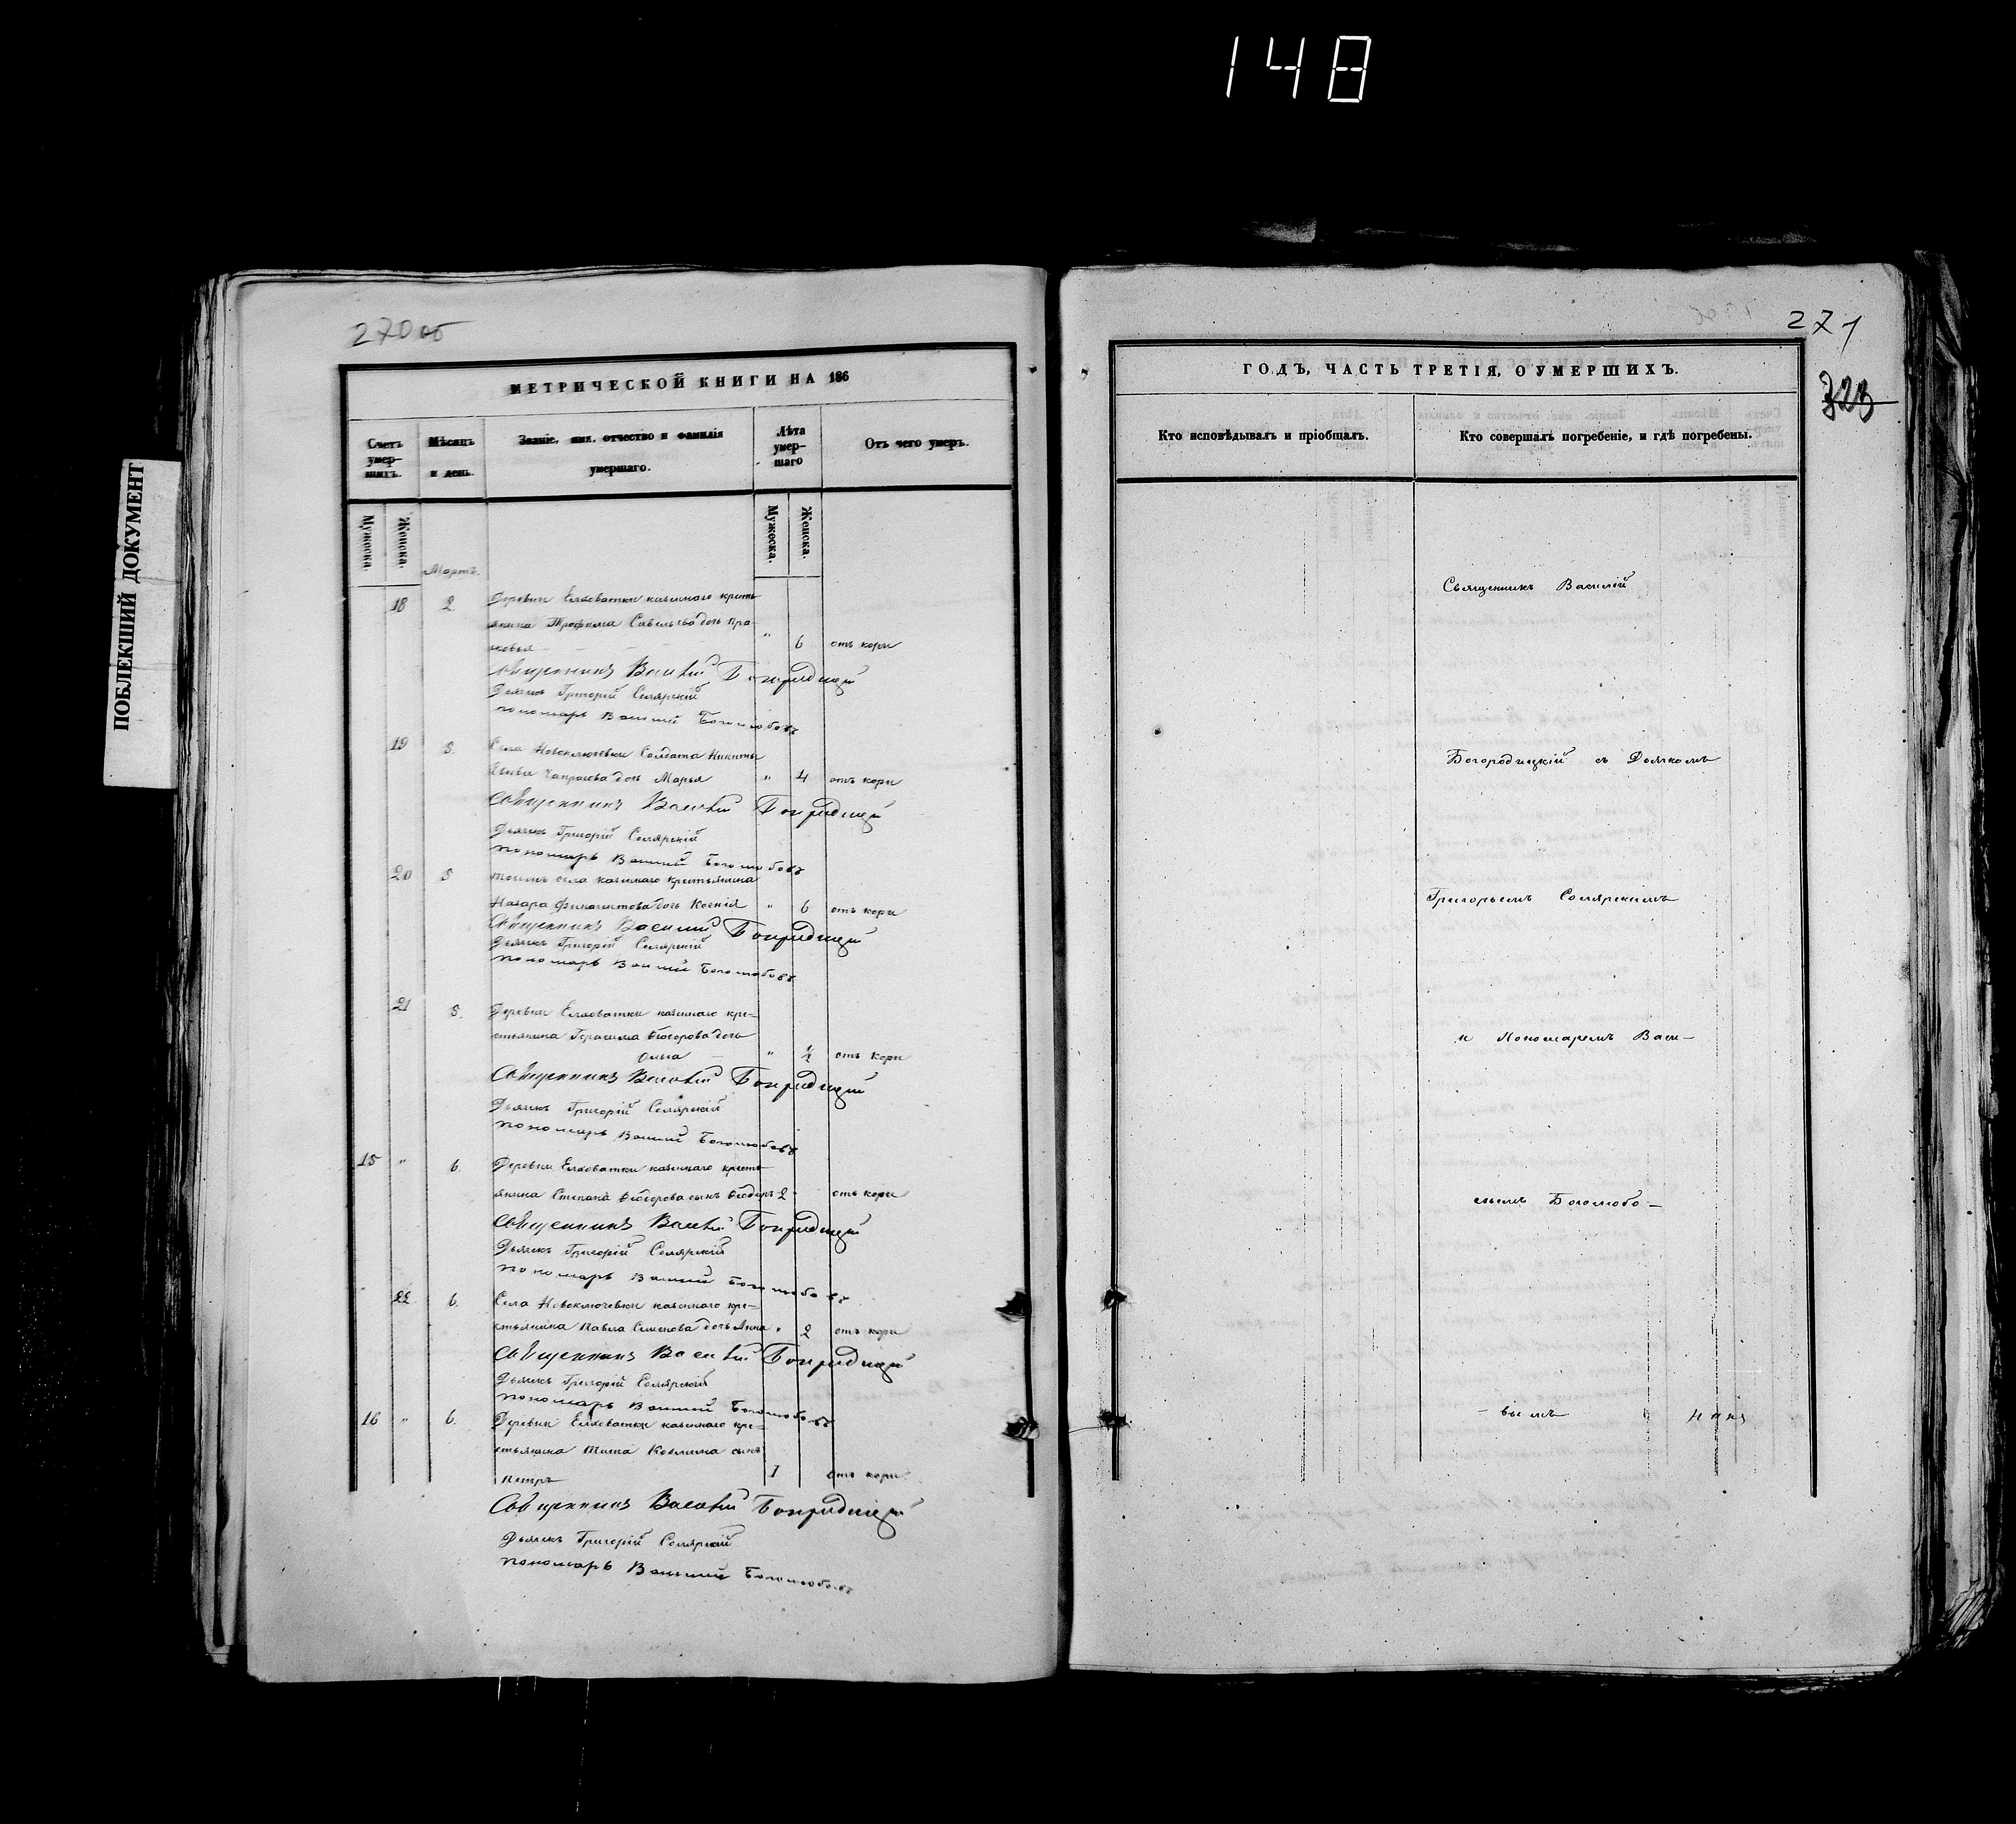 148
ПОБЛЕКШИЙ ДОКУМЕНТ
270 об
МЕТРИЧЕСКОЙ КНИГИ НА 186
Счетъ умер-шихъ.
Мѣсяцъ и день.
Званіе, имя, отчество и фамилія умершаго.
Лѣта умер-шаго
Отъ чего умеръ.
Мужеска.
Женска.
Мужеска.
Женска.
Мартъ.
18 2 Деревни Елховатки казеннаго кресть-
янина Трофима Савельева дочь Пра-
сковья " 6 отъ кори
Священникъ Василій Богородицкій
Дьячекъ Григорій Солярскій
Пономарь Василій Боголюбовъ
19 5. Села Новоключевки Солдата Никиты
дочь Марья " 4 отъ кори
Священникъ Василій Богородицкій
Дьячекъ Григорій Солярскій
Пономарь Василій Боголюбовъ
20 5 села казеннаго крестьянина
Назара дочь Ксенія " 6 отъ кори
Священникъ Василій Богородицкій
Дьячекъ Григорій Солярскій
Пономарь Василій Боголюбовъ
21 5. Деревни Елховатки казеннаго кре-
стьянина Герасима Ѳедорова дочь
Ольга " ½ отъ кори
Священникъ Василій Богородицкій
Дьячекъ Григорій Солярскій
Пономарь Василій Боголюбовъ
15 " 6. Деревни Елховатки казеннаго кресть-
янина Степана Ѳедорова сынъ Ѳедоръ 2 отъ кори
Священникъ Василій Богородицкій
Дьячекъ Григорій Солярскій
Пономарь Василій Боголюбовъ
22 6. Села Новоключевки казеннаго кре-
стьянина Павла Семенова дочь Анна " 2 отъ кори
Священникъ Василій Богородицкій
Дьячекъ Григорій Солярскій
Пономарь Василій Боголюбовъ
16 " 6. Деревни Елховатки казеннаго кре-
стьянина Тита Козмина сынъ
Петръ 1 отъ кори
Священникъ Василій Богородицкій
Дьячекъ Григорій Солярскій
Пономарь Василій Боголюбовъ
271
323
ГОДЪ, ЧАСТЬ ТРЕТІЯ, О УМЕРШИХЪ.
Кто исповѣдывалъ и пріобщалъ.
Кто совершалъ погребеніе, и гдѣ погребены.
Священникъ Василій
Богородицкій съ Дьячкомъ
Григорьемъ Солярскимъ
и Пономаремъ Васи-
льемъ Боголюбо-
-вымъ